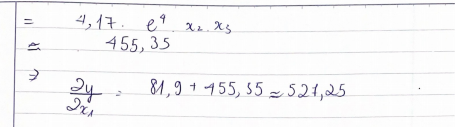 = 4,17 · e⁴ · x₂ · x₃
≈ 455,35
⇒ ∂y/∂x₁ = 81,9 + 455,35 ≈ 527,25